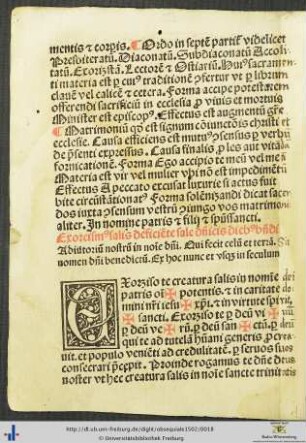 mentis ⁊ corpis. ¶ Ordo in septē partit̄ videlicet
Presbiteratū. Diaconatū. Subdiaconatū Accoli
tatū. Exorzistā. Lectorē ⁊ Ostiariū. Huꝰ sacramen
ti materia est ꝑ cuiꝰ traditionē ꝓfertur vt ꝑ librum
clauē vel calicē ⁊ cetera. Forma accipe potestatem
offerendi sacrificiū in ecclesia ꝓ viuis et mortuis
Minister est episcopꝰ. Effectus est augmentū gr̄e
¶ Matrimoniū qd̄ est signum coniunctōis christi et
ecclesie. Causa efficiens est mutuꝰ ꝯsensus ꝑ verba
de p̄senti expressus. Causa finalis ꝓ les aut vitatio
fornicationē. Forma Ego accipio te meū vel meā
Materia est vir vel mulier vbi nō est impedimētū
Effectus A peccato excusat luxurie si actus fuit
bite circūstātionatꝰ Forma solēnizandi dicat sacer
dos iuxta ꝯsensum vestrū ꝯiungo vos matrimoni
aliter. In nomine patris ⁊ filij ⁊ spūssancti.
Exorcismꝰ salis deficiēte sale dn̄icis dieb
Adiutoriū nostrū in noīe dn̄i. Qui fecit celū et terrā. Sit
nomen dn̄i benedictū. Ex hoc nunc et vsqꝫ in seculum
EXorziso te creatura salis in nomine dei
patris oīm ✠ potentis. ⁊ in caritate do
mini nr̄i iesu ✠ xp̄i. ⁊ in virtute spirit
✠ sancti. Exorziso te ꝑ deū vi ✠
ꝑ deū ve ✠ rū. ꝑ deū san ✠ ctū. ꝑ deū
qui te ad tutelā hūani generis ꝓcrea
uit. et populo veniēti ad credulitatē. ꝑ seruos suos
consecrari p̄cepit. Proinde rogamus te dn̄e deus
noster vt hec creatura salis in noīe sancte trinitatis
http://dl.ub.uni-freiburg.de/diglit/obsequiale1502/0018
© Universitätsbibliothek Freiburg